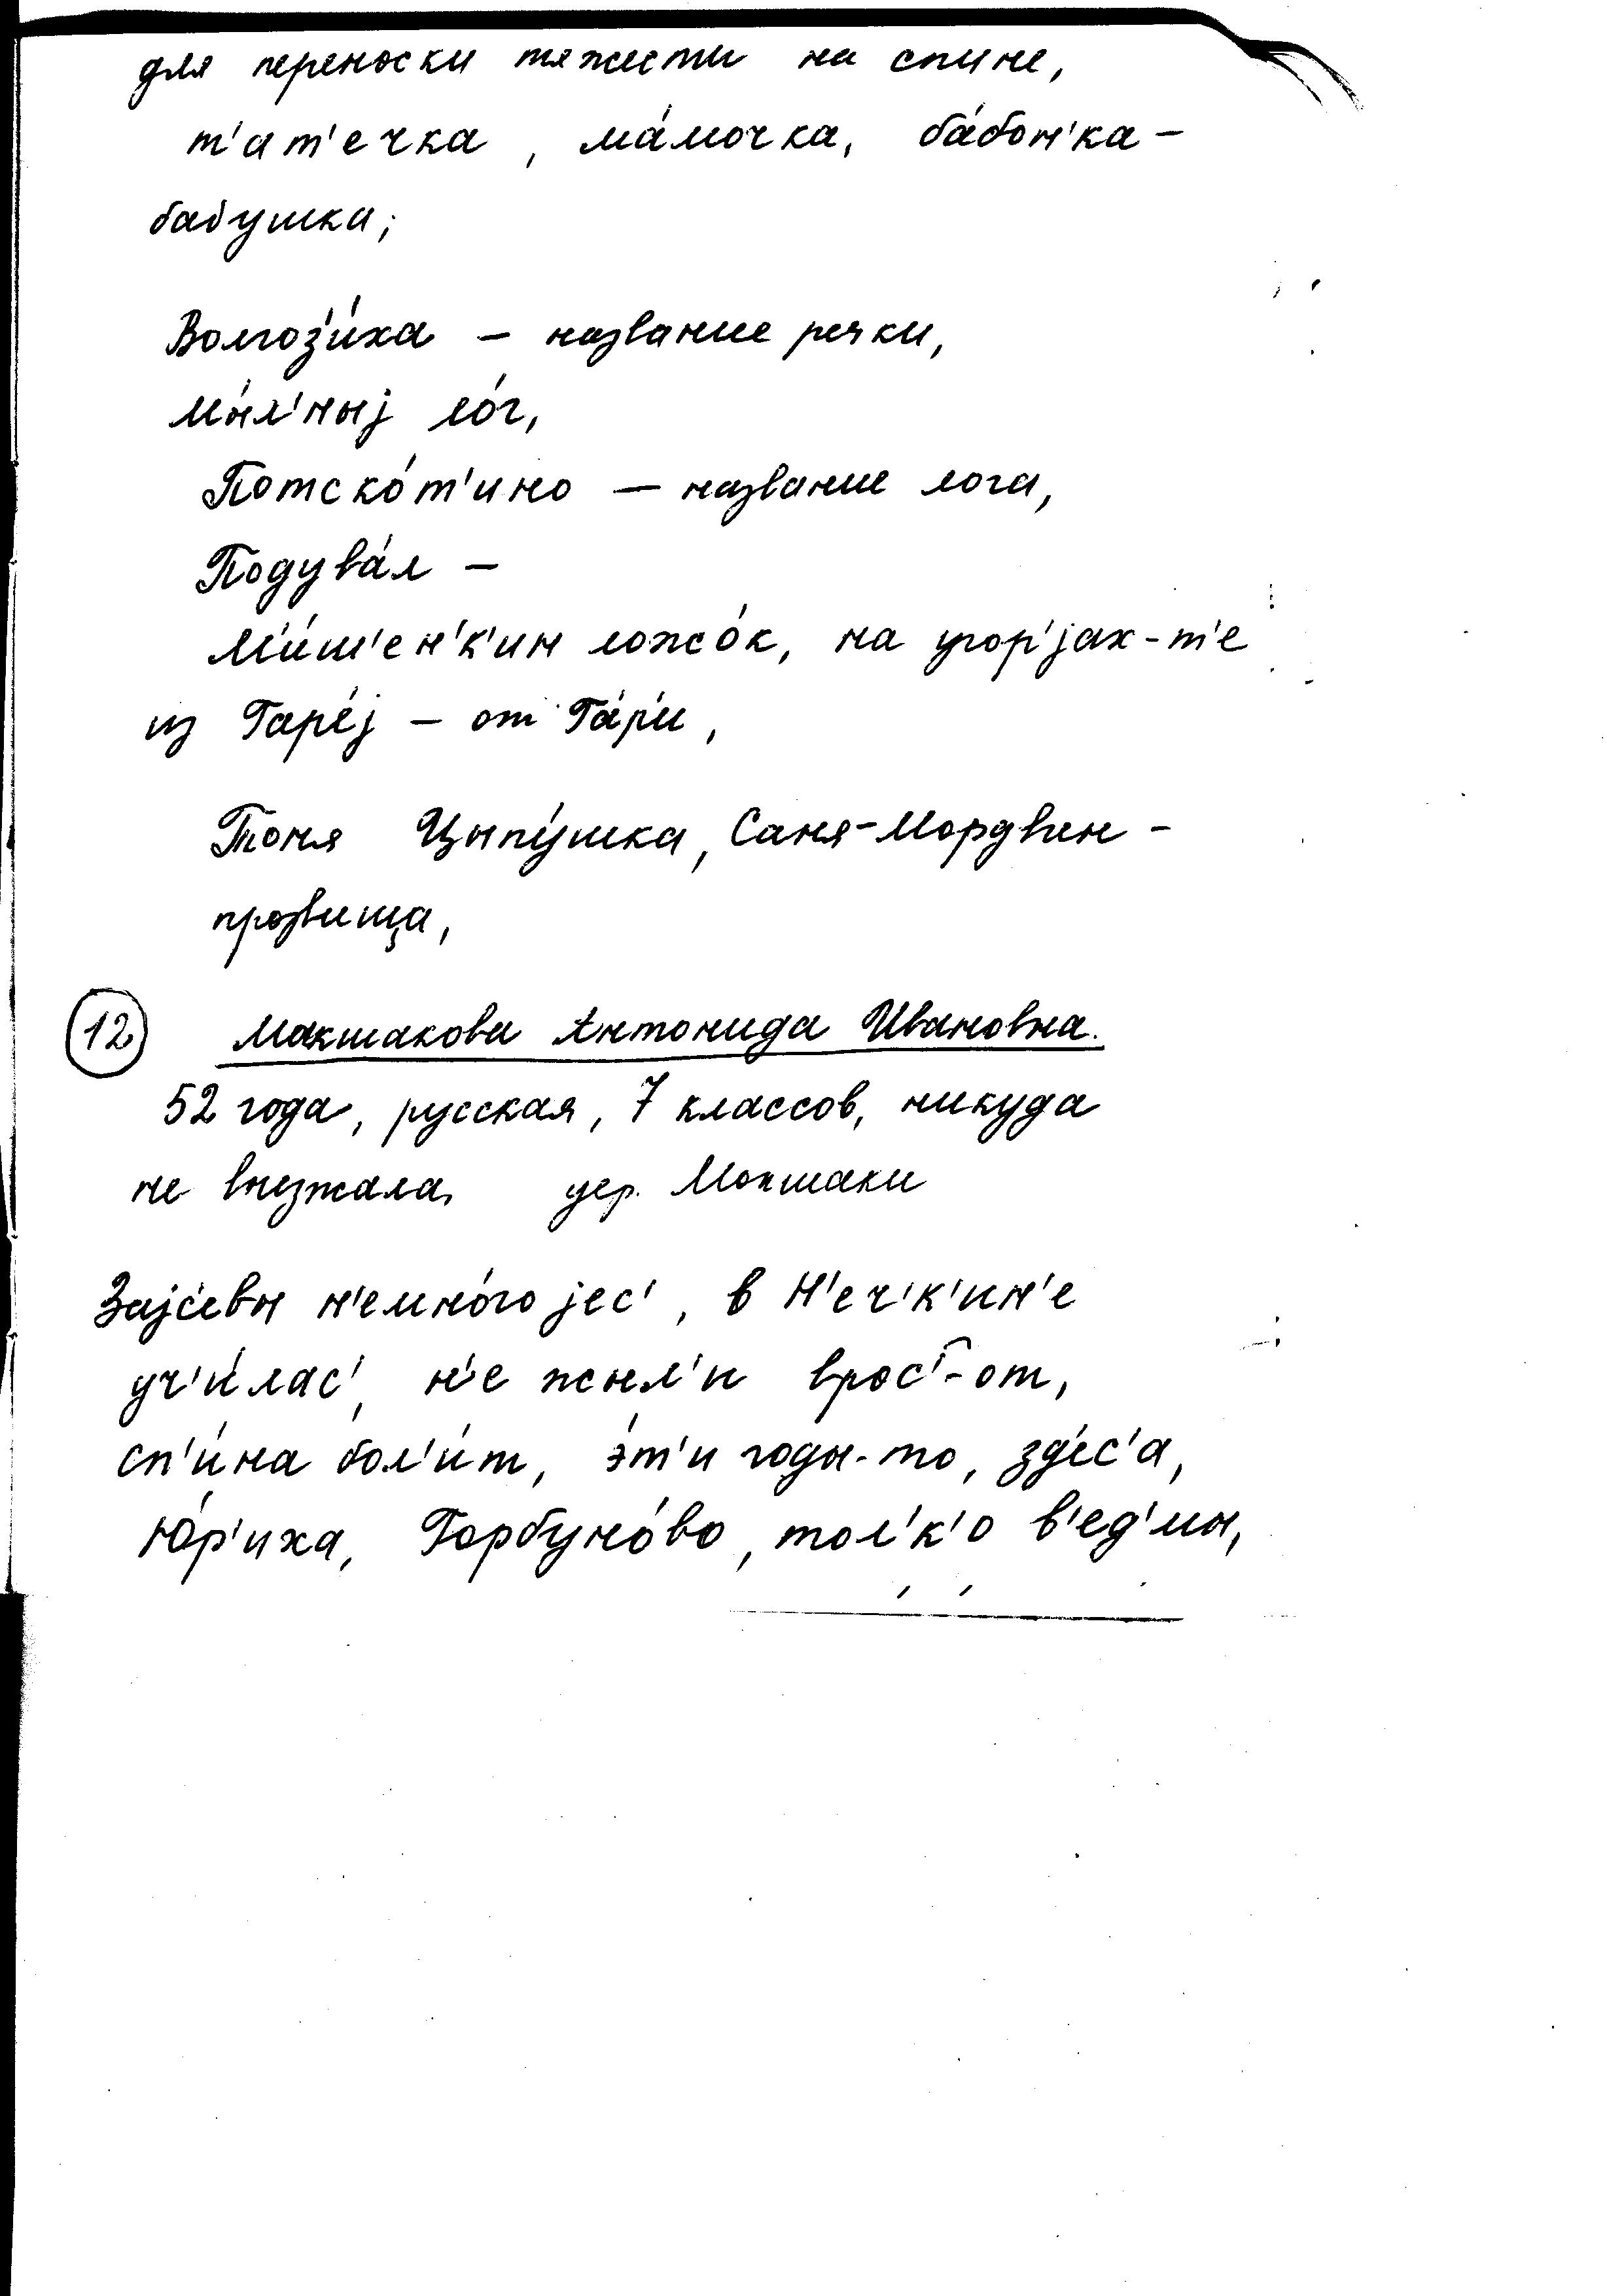 для переноски тяжести на спине,
т'ат'ечка, ма́мочка, ба́бон'ка –
бабушка;
Волгоз'и́ха – название речки,
Мы́л'ныј ло́г,
Потско́т'ино – название лога,
Подува́л –
М'и́ш'ен'к'ин ложо́к, на угор'јах-т'е
из Гаре́ј – от Га́р'и,
Тоня Цыпу́шка, Саня-Мордвин –
прозвища,
12 Макшакова Антонида Ивановна.
52 года, русская, 7 классов, никуда
не выезжала, дер. Мокшаки
Зајс'евы н'емно́го јес', в Н'еч'к'ин'е
уч'и́лас', н'е жыл'и врос'-от,
сп'и́на бол'и́т, э́т'и годы-то, зд'ес'а,
Ю́р'иха, Горбуно́во, тол'к'о в'ед'мы,